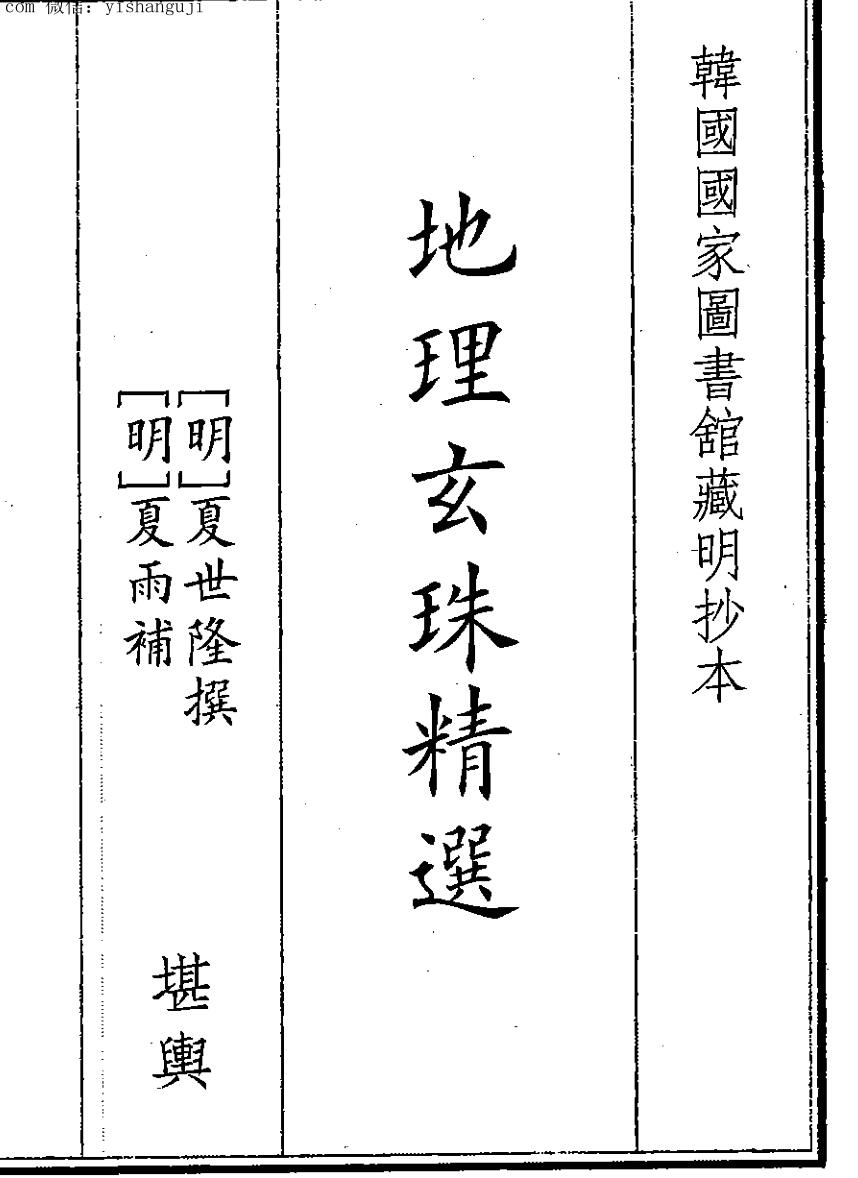 com 微信：yishanguji
韓國國家圖書舘藏明抄本
地理玄珠精選
[明]夏世隆撰
[明]夏雨補
堪輿